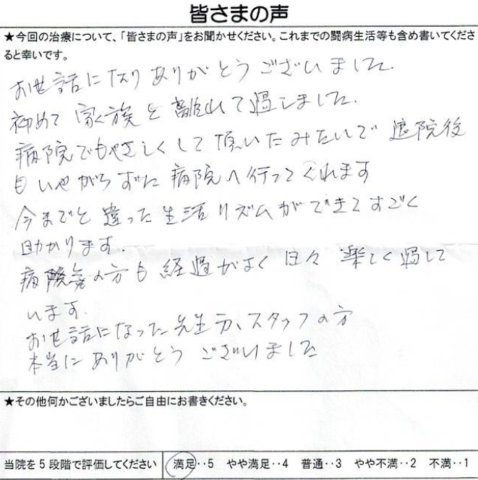 皆さまの声
★今回の治療について、「皆さまの声」をお聞かせください。これまでの闘病生活等も含め書いてくださ
ると幸いです。
お世話になりありがとうございました。
初めて家族と離れて過しました。
病院でもやさしくして頂いたみたいで退院後
もいやがらずに病院へ行ってくれます
今までと違った生活リズムができてすごく
助かります.
病院の方も経過がよく日々楽しく過して
います.
お世話になった先生方、スタッフの方
本当にありがとうございました
★その他何かございましたらご自由にお書きください。
当院を5段階で評価してください 満足‥5 やや満足‥4 普通‥3 やや不満‥2 不満‥1